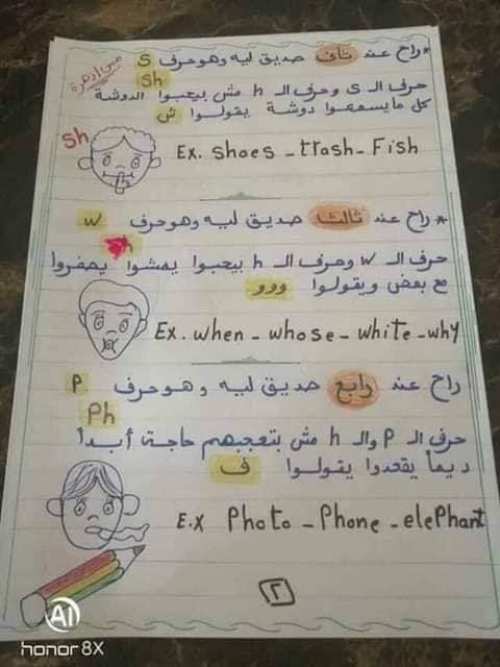 * راح عند تاني صديق ليه وهو حرف S
Sh
حرف الـ S وحرف الـ h مش بيحبوا الدوشة
كل ما يسمعوا دوشة يقولوا ش
Sh
Ex. Shoes - trash - Fish
* راح عند ثالث صديق ليه وهو حرف w
h
حرف الـ w وحرف الـ h بيحبوا يمشوا يصفروا
مع بعض ويقولوا ووو
Ex. when - whose - white - why
راح عند رابع صديق ليه وهو حرف P
Ph
حرف الـ P والـ h مش بتعجبهم حاجة أبداً
ديماً يقعدوا يقولوا ف
E.x Photo - Phone - elePhant
٢
AI
honor 8X